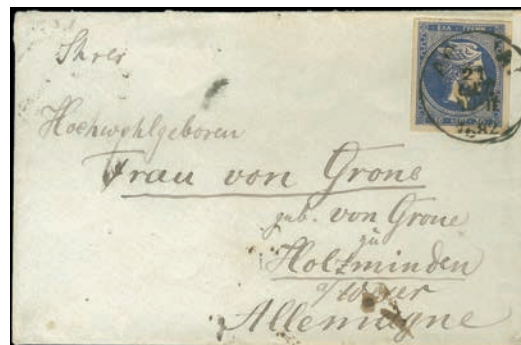 Ihrer
Hochwohlgeboren
Frau von Grone
geb. von Grone
zu
Holzminden
a/Weser
Allemagne
ΕΛΛ. ΓΡΑΜΜ.
21
1882